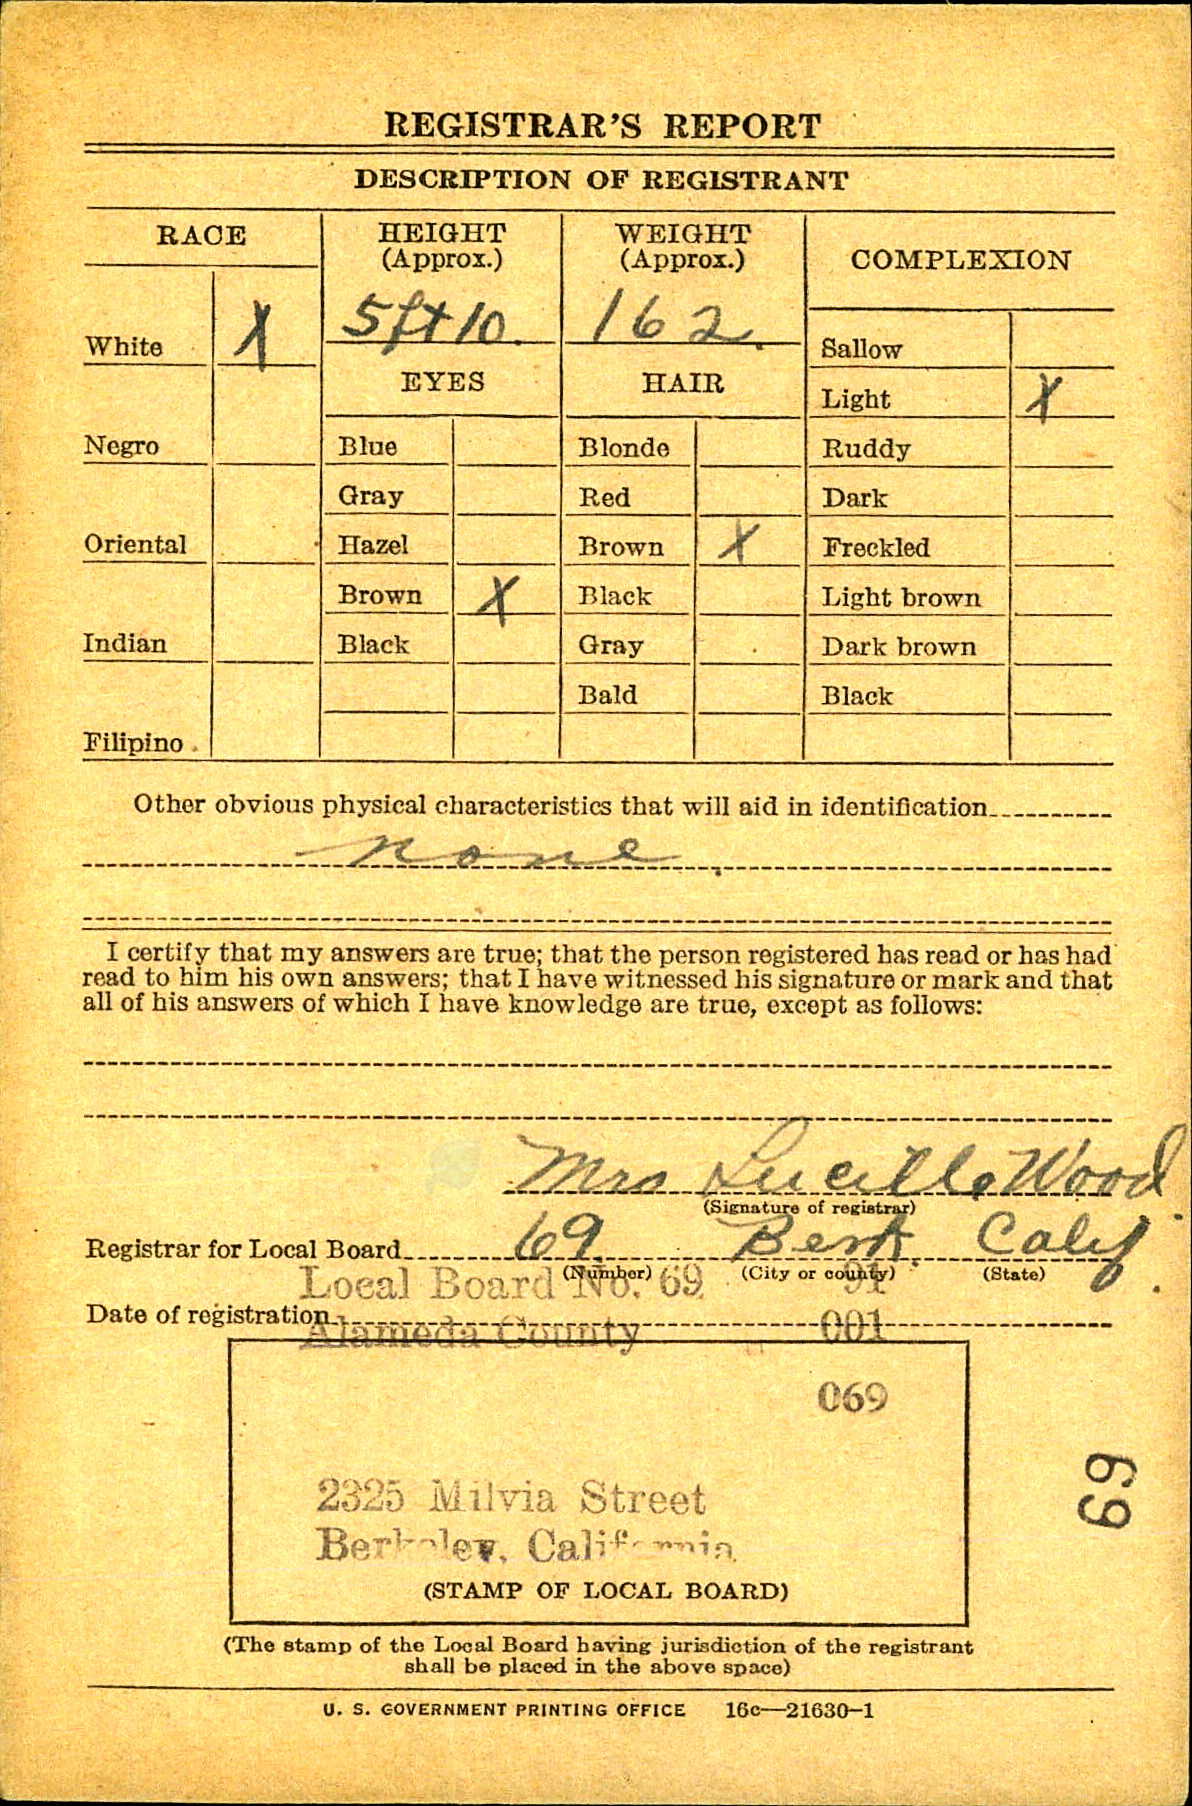 REGISTRAR'S REPORT
DESCRIPTION OF REGISTRANT
RACE
HEIGHT
(Approx.)
WEIGHT
(Approx.)
COMPLEXION
White X
5 ft 10.
162.
Sallow
EYES
HAIR
Light X
Negro
Blue
Blonde
Ruddy
Gray
Red
Dark
Oriental
Hazel
Brown X
Freckled
Brown X
Black
Light brown
Indian
Black
Gray
Dark brown
Bald
Black
Filipino
Other obvious physical characteristics that will aid in identification
none.
I certify that my answers are true; that the person registered has read or has had
read to him his own answers; that I have witnessed his signature or mark and that
all of his answers of which I have knowledge are true, except as follows:
Mrs Lucille Wood
(Signature of registrar)
Registrar for Local Board 69 Berk. Calif.
(Number) (City or county) (State)
Local Board No. 69 91
Date of registration
Alameda County 001
069
2325 Milvia Street
Berkeley, California
(STAMP OF LOCAL BOARD)
69
(The stamp of the Local Board having jurisdiction of the registrant
shall be placed in the above space)
U. S. GOVERNMENT PRINTING OFFICE 16c—21630-1